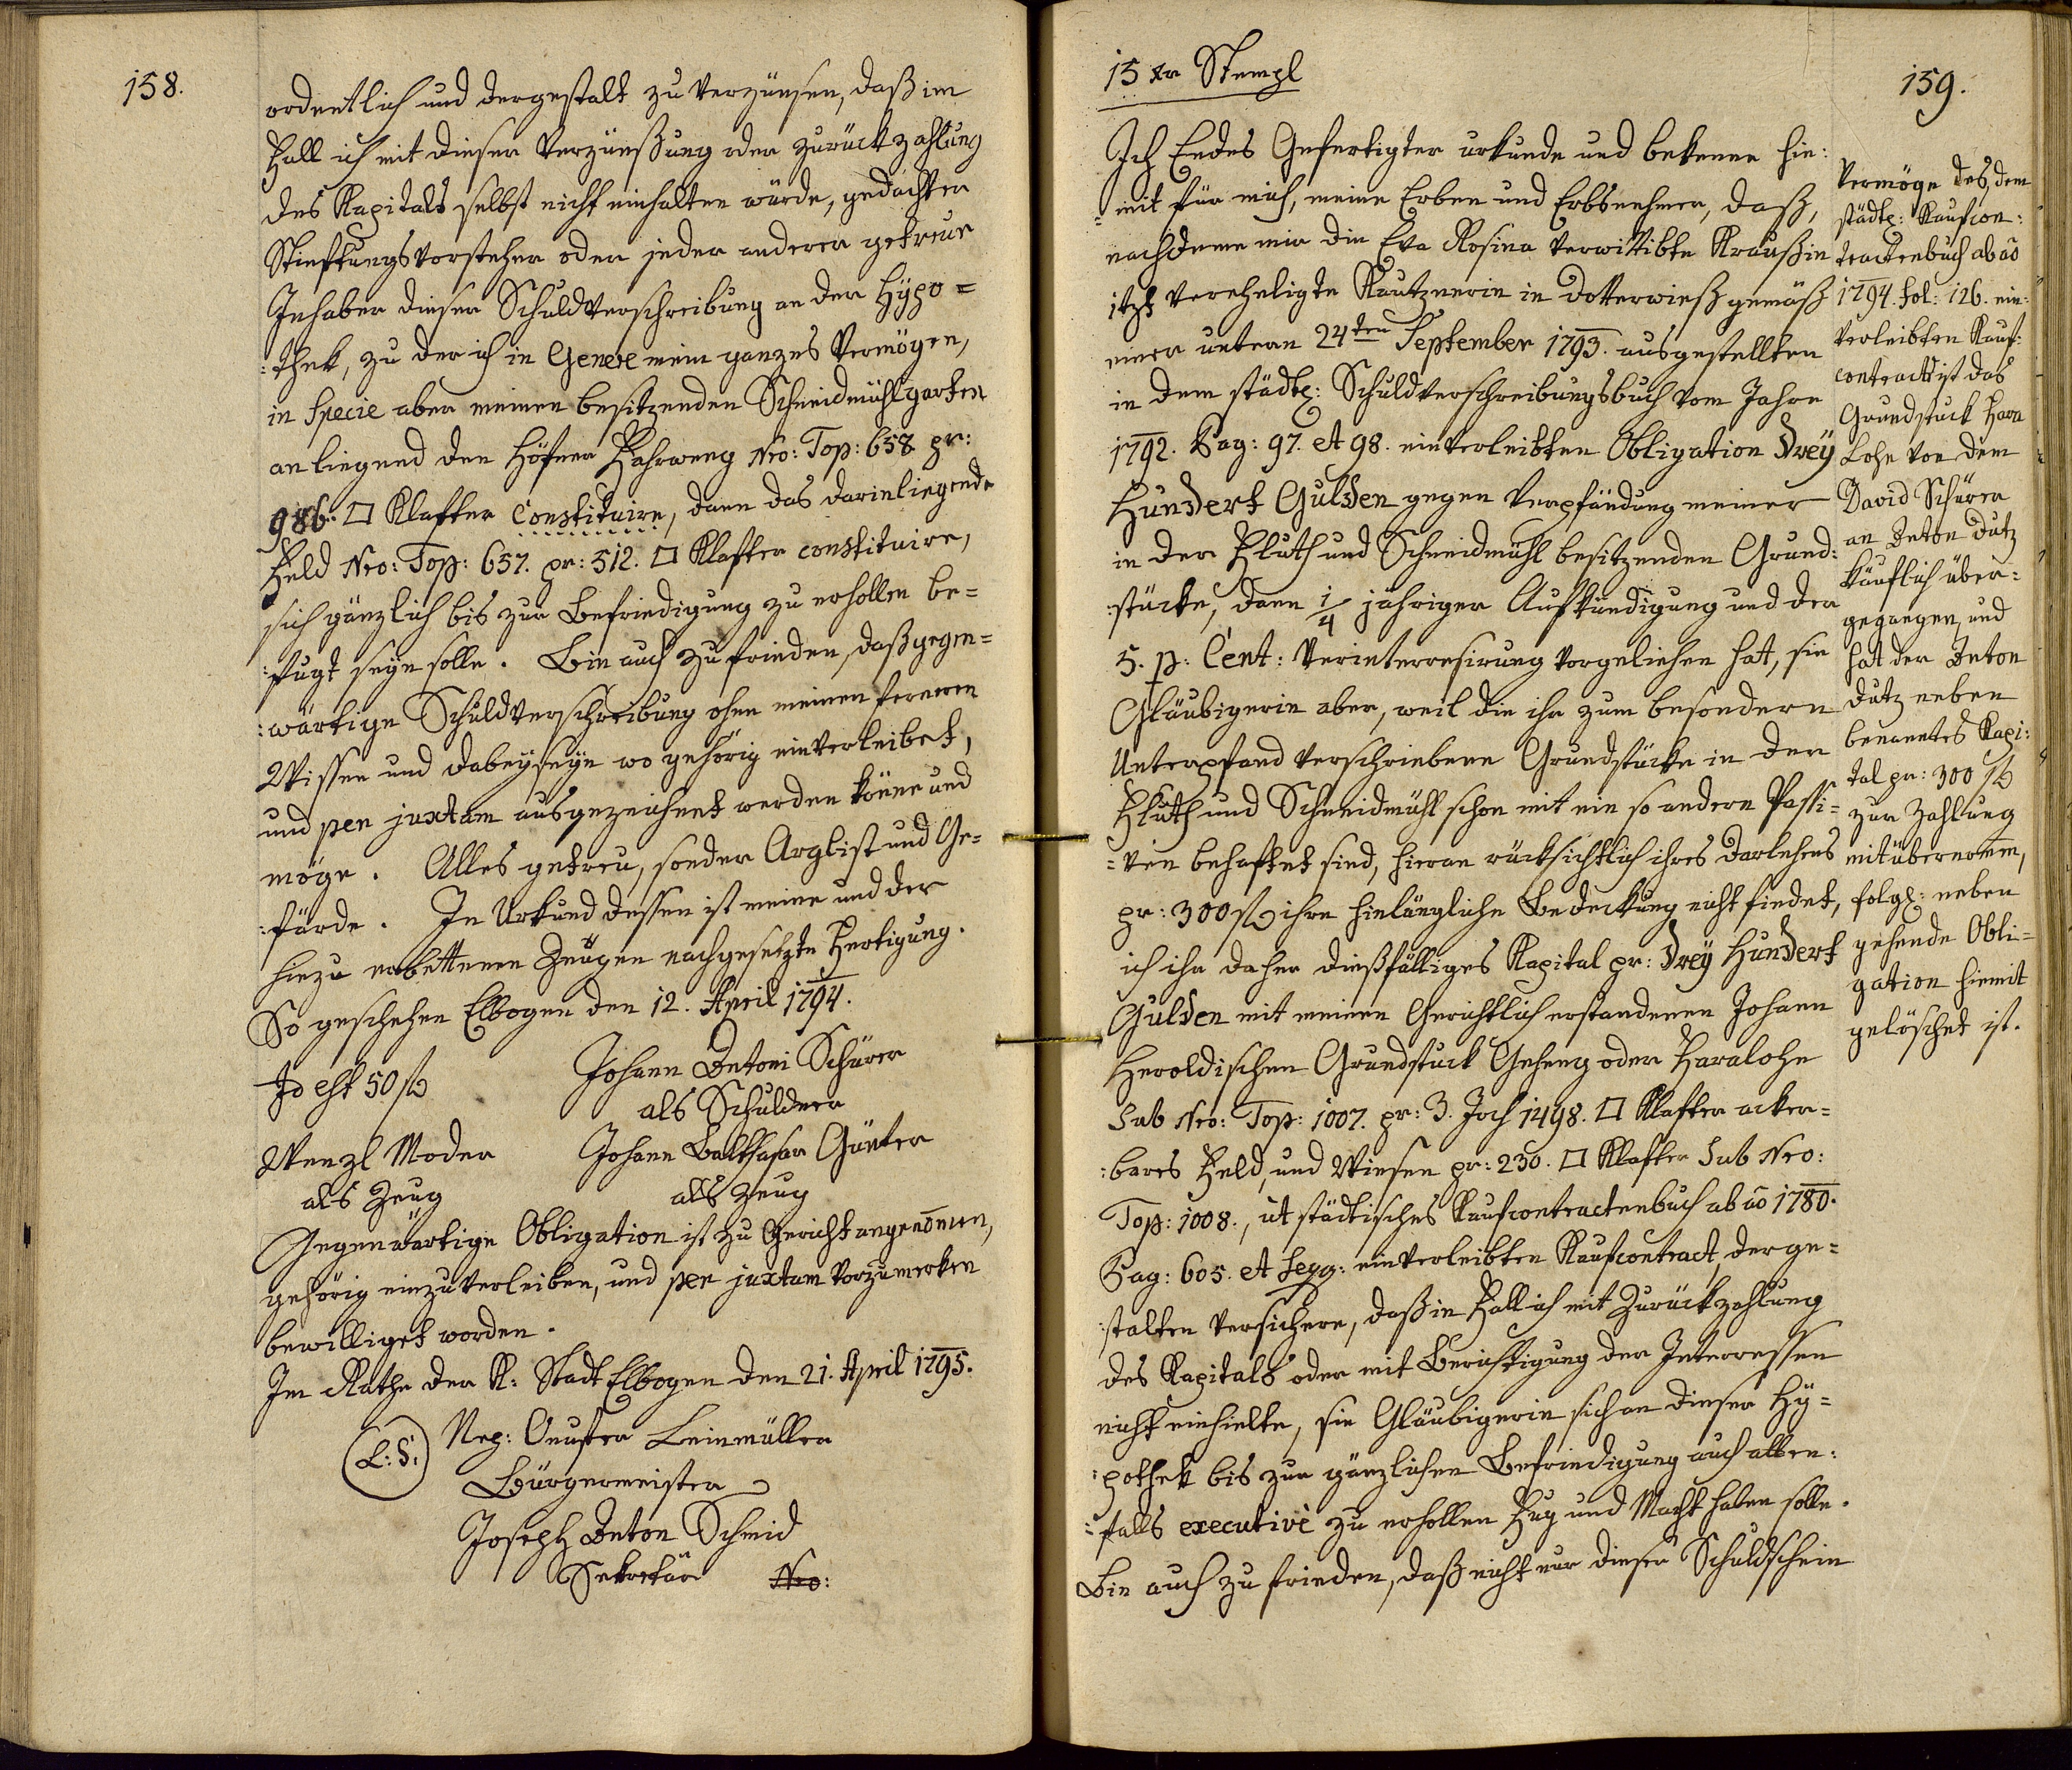 158.
ordentlich und dergestalt zu verzünsen, daß im
Fall ich mit dieser Verzünßung oder Zurückzahlung
des Kapitals selbst nicht einhalten würde, gedachter
Stieftungsvorsteher oder jeder anderer getreue
Inhaber dieser Schuldverschreibung an der Hypo=
:thek, zu der ich in Genere mein ganzes Vermögen,
in Specie aber meinen besitzenden Schneidmühlgarten
anliegend den Höfner Fahrweeg Nro: Top: 658 pr:
986. □ Klafter Constituire, dann das darinliegende
Feld Nro: Top: 657. pr: 512. □ Klafter constituire,
sich gänzlich bis zur Befriedigung zu erhollen be=
:fugt seyn solle. Bin auch zufrieden, daß gegen=
:wärtige Schuldverschreibung ohne meinen ferneren
Wissen und dabeyseyn wo gehörig einverleibet,
und per juxtam ausgezeichnet werden könne und
möge. Alles getreu, sonder Arglist und Ge=
:färde. In Urkund dessen ist meine und der
hiezu erbettenen Zeugen nachgesetzte Fertigung.
So geschehen Elbogen den 12. April 1794.
Id est 50 f Johann Antoni Schürer
als Schuldner
Wenzl Moder Johann Balthasar Günter
als Zeug als Zeug
Gegenwärtige Obligation ist zu Gericht angenom̅en,
gehörig einzuverleiben, und per juxtam vorzumerken
bewilliget worden.
Im Rathe der K: Stadt Elbogen den 21. April 1795.
(L: S:) Neg: Onufter Leinmüller
Bürgermeister
Joseph Anton Schmid
Sekretär Nro:
15 xr Stempl
159.
Ich Endes Gefertigter urkunde und bekenne hie:
=mit für mich, meine Erben und Erbsnehmer, daß,
nachdeme mir die Eva Rosina verwittibte Kraußin
itzt verehligte Kautznerin in Dotterwieß gemäß
einer unterm 24ten September 1793. ausgestellten
in dem städtl: Schuldverschreibungsbuch vom Jahre
1792. Pag: 97. et 98. einverleibten Obligation Drey
Hundert Gulden gegen Verpfändung meiner
in der Fluth und Schneidmühl besitzenden Grund:
:stücke, dann 1/4 jähriger Aufkündigung und der
5. p: Cent: Verinterresirung vorgeliehen hat, sie
Gläubigerin aber, weil die ihr zum besondern
Unterpfand verschriebene Grundstücke in der
Fluth und Schneidmühl schon mit ein so andern Passi=
=ven behaftet sind, hieran rücksichtlich ihres Darlehens
pr: 300 f ihre hinlängliche Bedeckung nicht findet,
ich ihr daher dießfälliges Kapital pr: Drey Hundert
Gulden mit meinen Gerichtlich erstandenen Johann
Heroldischen Grundstuck Geheng oder Haralohe
Sub Nro: Top: 1007. pr: 3. Joch 1498. □ Klafter acker=
:bares Feld, und Wiesen pr: 230. □ Klafter Sub Nro:
Top: 1008., ut städtisches Kaufcontractenbuch ab ao 1780.
Pag: 605. et seqq: einverleibten Kaufcontract, derge=
:stalten versichere, daß in Fall ich mit Zurückzahlung
des Kapitals oder mit Berichtigung der Interressen
nicht einhielte, sie Gläubigerin sich an dieser Hy=
:pothek bis zur gänzlichen Befriedigung auch allen:
:falls executivè zu erhollen Fug und Macht haben solle.
Bin auch zufrieden, daß nicht nur dieser Schuldschein
Vermöge des, dem
städtl: Kaufcon:
tractenbuch ab ao
1794. fol: 126. ein:
verleibten Kauf:
contracts ist das
Grundstuck Hara
Lohe von dem
David Schürer
an Anton Dutz
käuflich über:
gegangen, und
hat der Anton
Dutz neben
benanntes Kapi:
tal pr: 300 f
zur Zahlung
mitübernom̅en,
folgl: neben
gehende Obli=
gation hiemit
gelöschet ist.